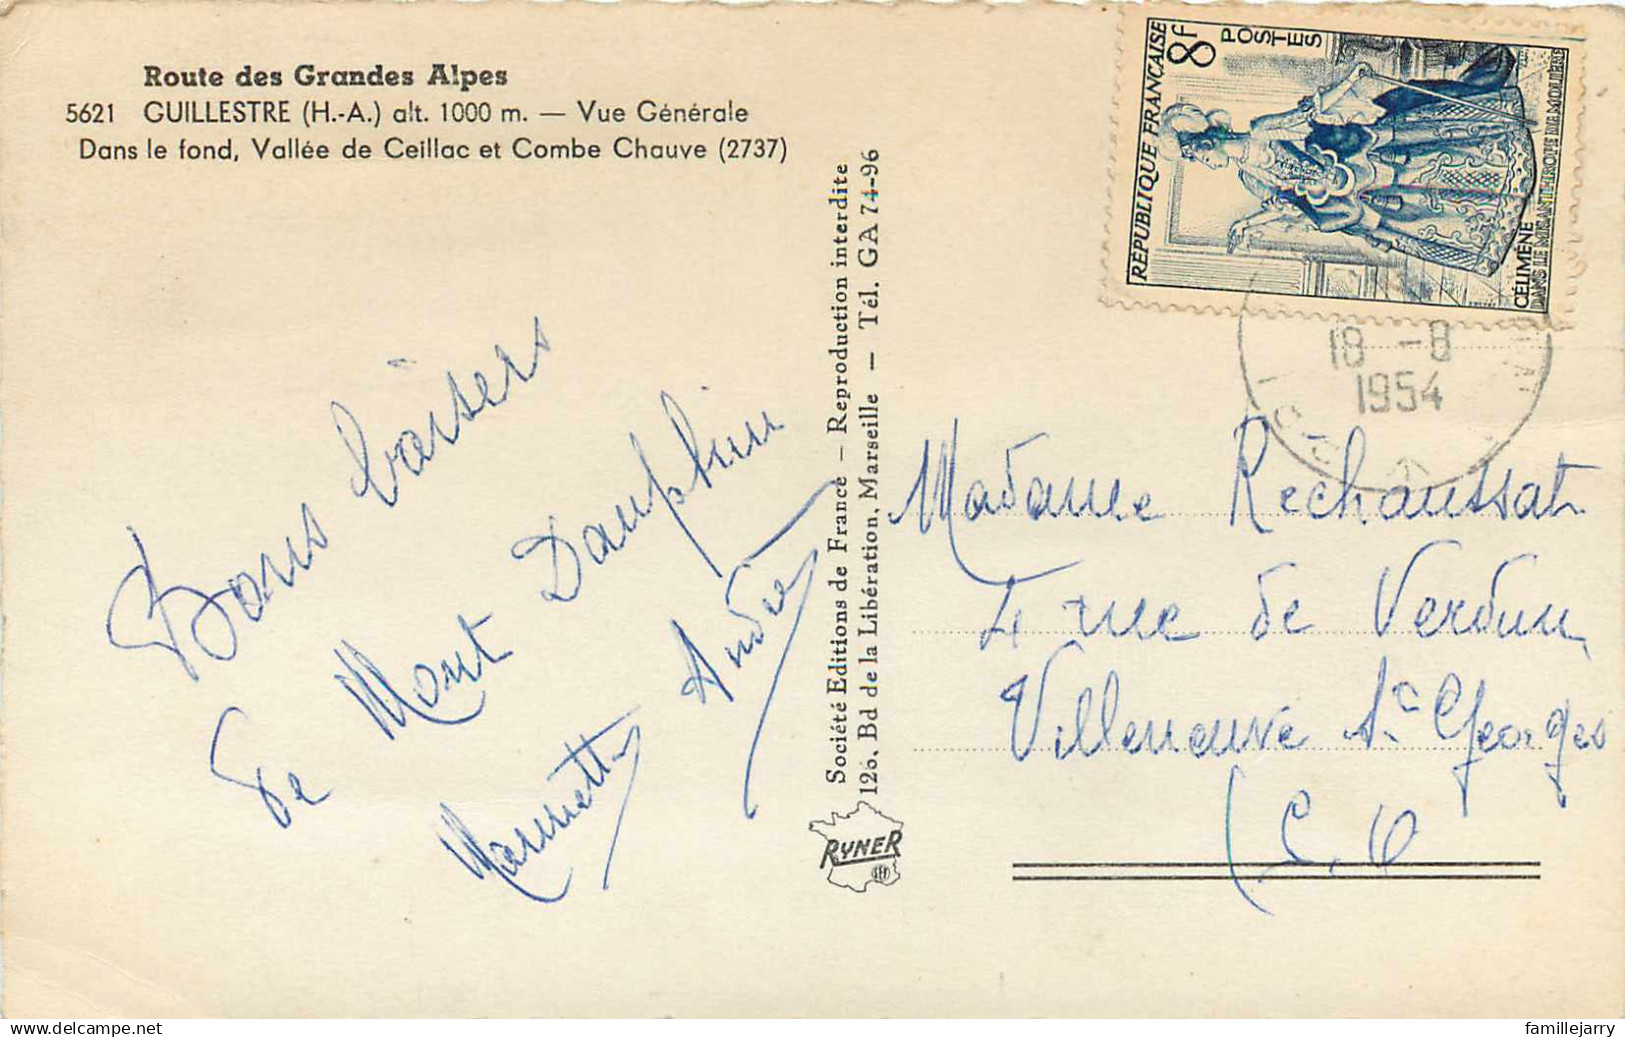 Route des Grandes Alpes
5621 GUILLESTRE (H.-A.) alt. 1000 m. — Vue Générale
Dans le fond, Vallée de Ceillac et Combe Chauve (2737)
Bons baisers
de Mont Dauphin
Marinette André
Société Editions de France — Reproduction interdite
126, Bd de la Libération, Marseille — Tél. GA 74-96
RYNER
SEF
RÉPUBLIQUE FRANÇAISE
8F
POSTES
CÉLIMÈNE
DANS LE MISANTHROPE DE MOLIÈRE
18 -8
1954
Madame Rechaussat
4 rue de Verdun
Villeneuve St Georges
(S. O
famillejarry
delcampe.net